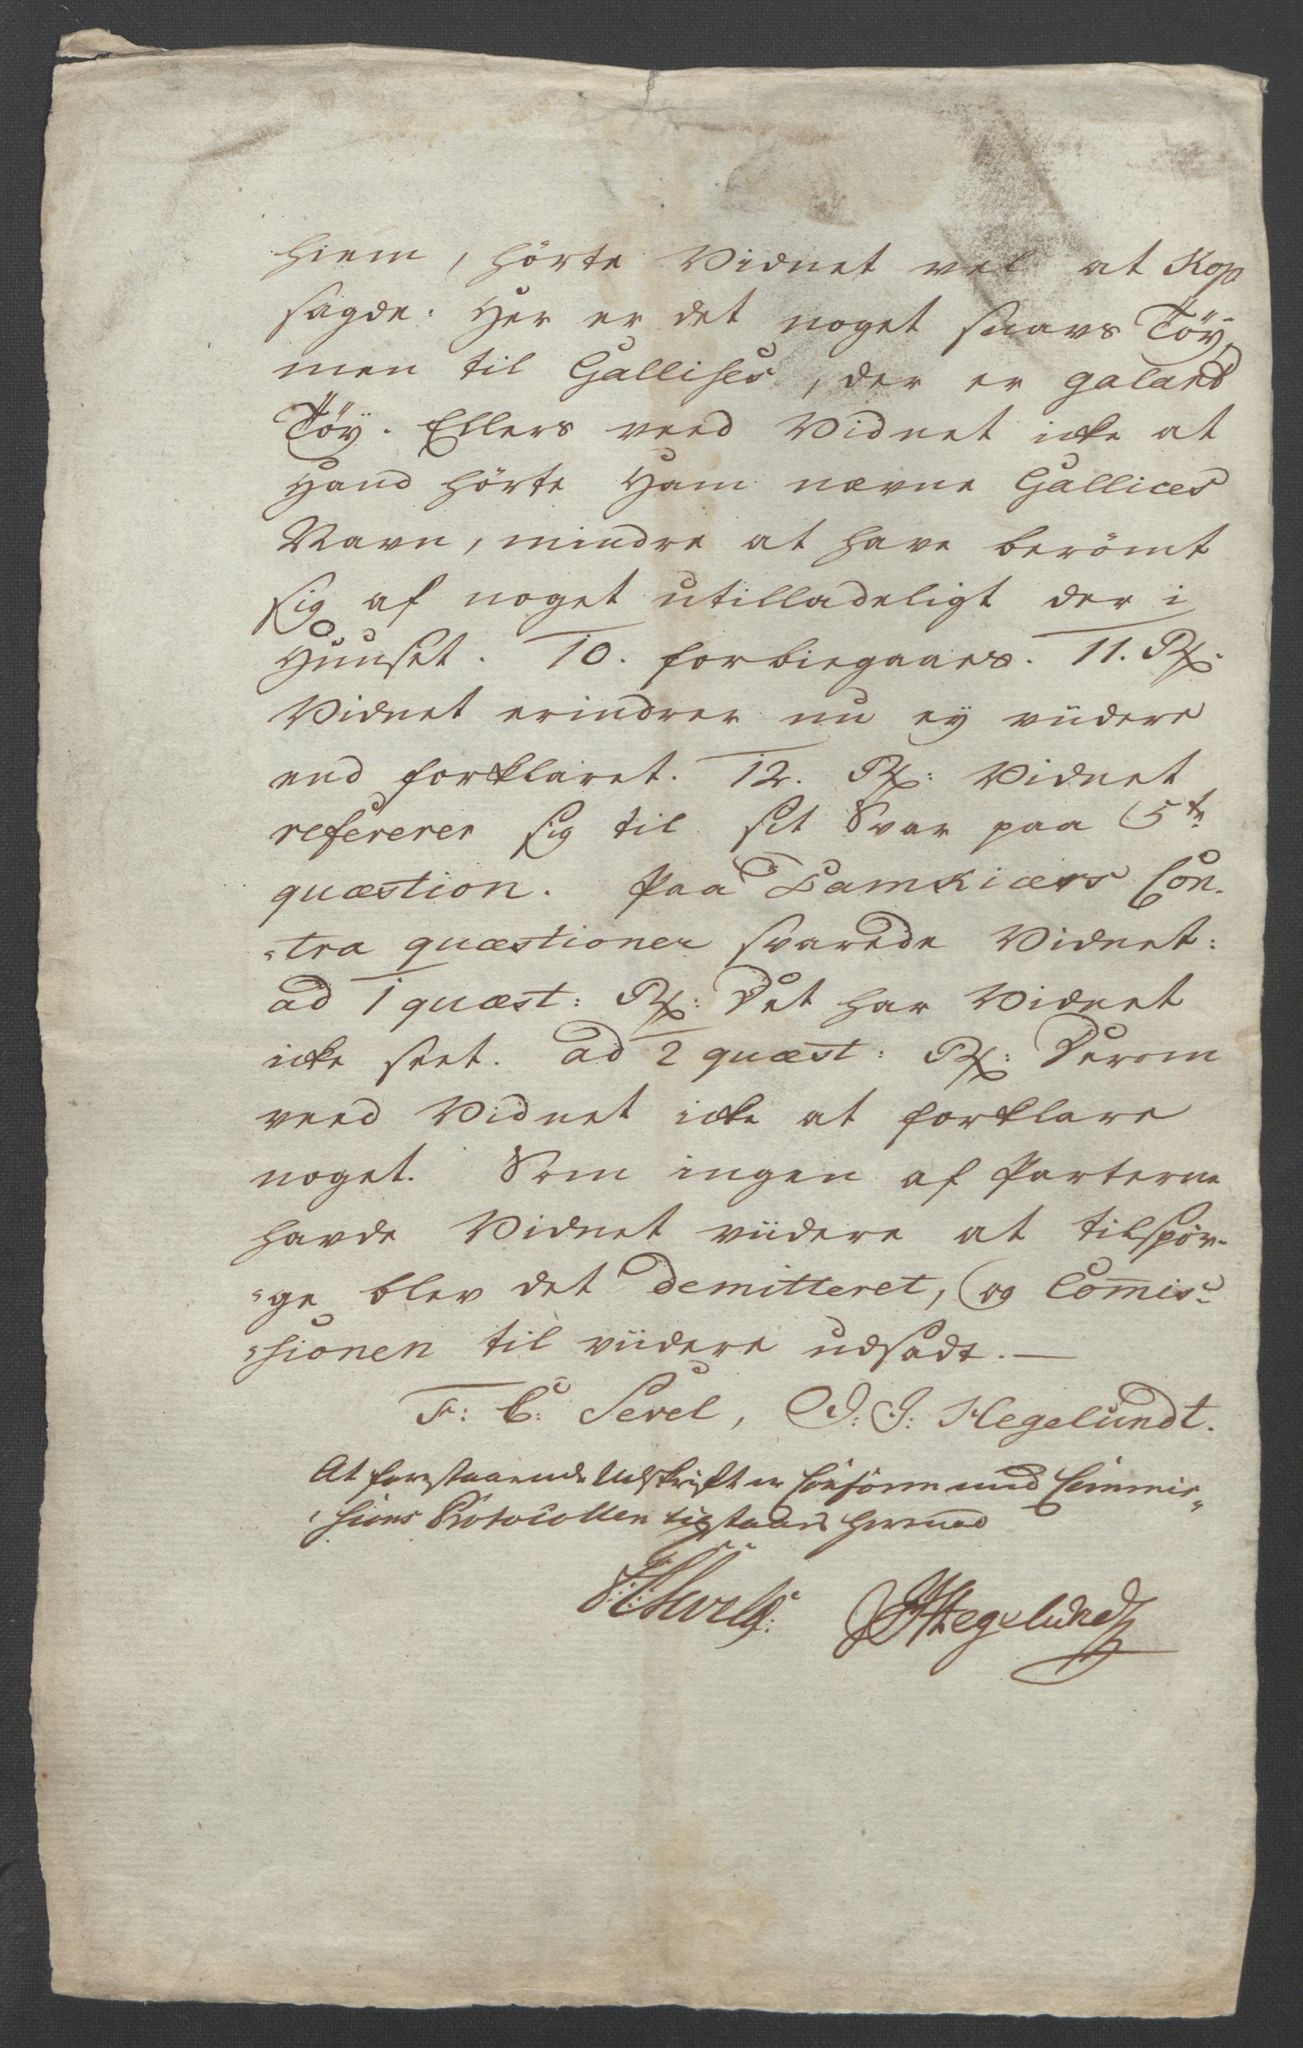 hiem, hörte Vidnet vel at Kop
sagde: Her er det noget snavs Töy,
men til Gallises, der er galant
Töy. Ellers veed Vidnet icke at
Hand hörte Ham nævne Gallices
Navn, mindre at have berömt
sig af noget utilladeligt der i
Huuset. 10. forbiegaaes. 11. Rx.
Vidnet erindrer nu ey viidere
end forklaret. 12. Rx: Vidnet
refererer sig til sit Svar paa 5te
quæstion. Paa Camkiærs Con-
-tra quæstioner svarede Vidnet:
ad 1 quæst: Rx: Det har Vidnet
icke seet. ad 2 quæst: Rx: Derom
veed Vidnet icke at forklare
noget. Som ingen af Parterne
havde Vidnet viidere at tilspör-
-ge blev det demitteret, og Com̄is-
-sionen til viidere udsadt. —
F: C: Sevel, J: J: Hegelundt.
At forestaaende Udskrift er Conform med Commis-
-sions Protocollen tilstaaes herved
FCSevel JJHegelundt